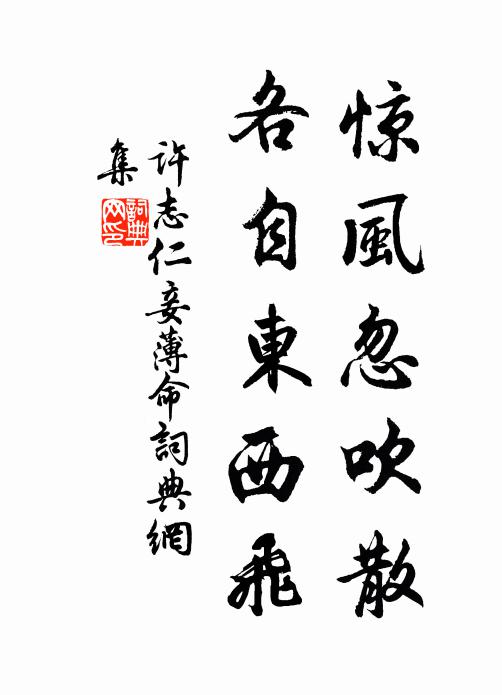 惊風忽吹散
各自東西飛
許志仁妾薄命詞典網
集
詞典網印